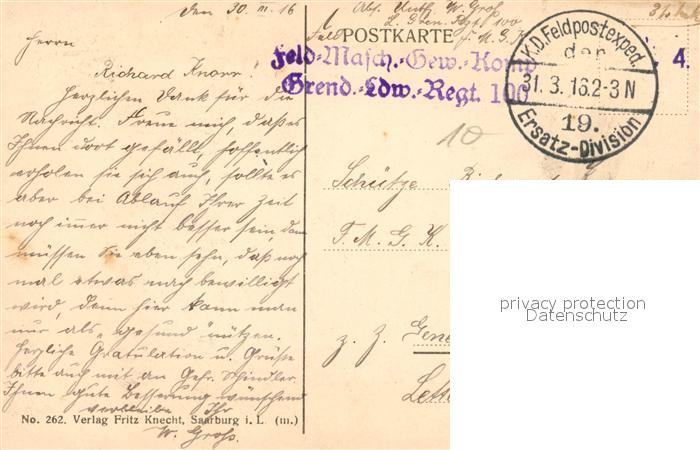 den 30. III. 16
Herrn
Richard Knorr.
Herzlichen Dank für die
Nachricht. Freue mich, daß es
Ihnen dort gefällt, hoffentlich
erholen sie sich auch, sollte es
aber bei Ablauf Ihrer Zeit
noch immer nicht besser sein, dann
müssen Sie eben sehn, daß noch
mal etwas nach bewilligt
wird, denn hier kann man
nur als "gesund" nützen.
Herzliche Gratulation u. Grüße
bitte auch mit an Gefr. Schindler.
Ihnen gute Besserung wünschend
verbleibe Ihr
W. Groß.
No. 262. Verlag Fritz Knecht, Saarburg i. L. (m.)
Abs. W. Groß
L. Gren. Rgt. 100
POSTKARTE
Feld-Masch.-Gew.-Komp.
Grend.-Ldw.-Regt. 100
4.
K.D.Feldpostexped.
der
31. 3. 16.2-3 N
19.
Ersatz-Division
10
Schütze
F. M. G. K.
z. Z.
privacy protection
Datenschutz